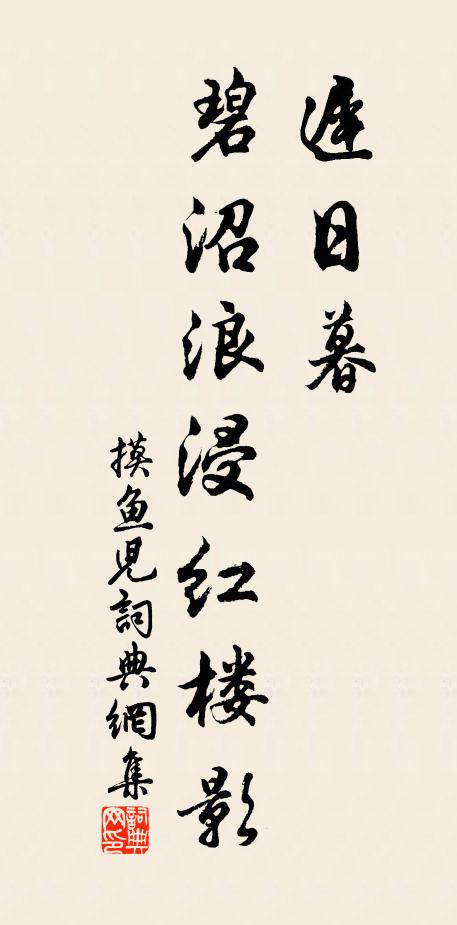 遅日暮
碧沼浪浸红楼影
摸鱼児詞典網集
詞典网印